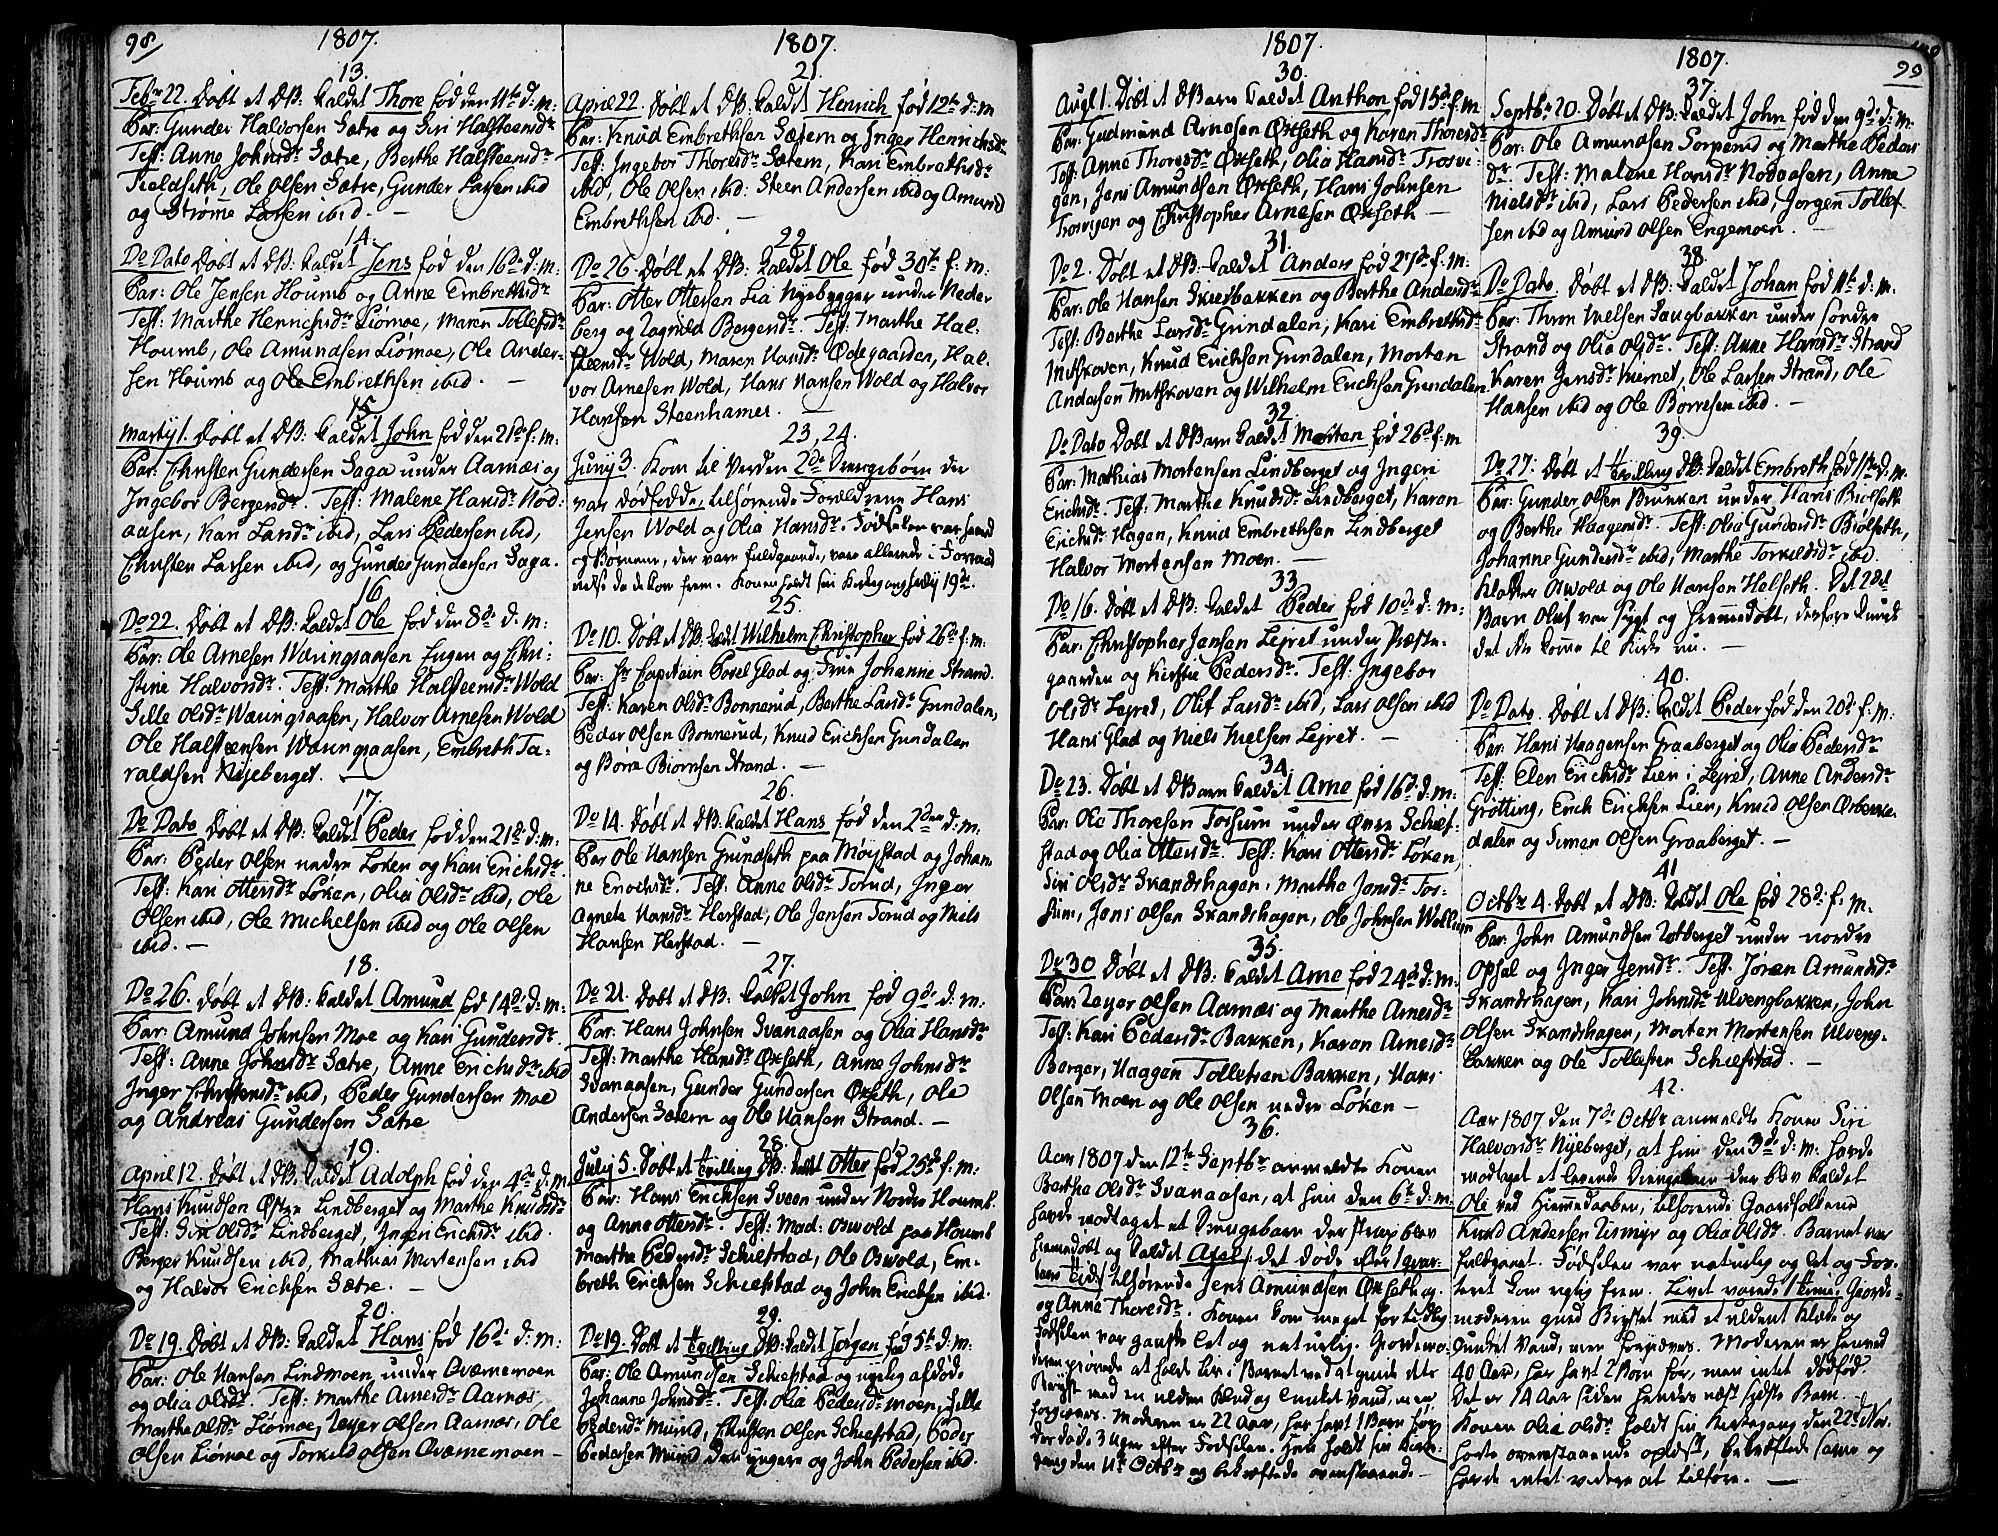 98
1807.
13.
Febr 22. Døbt et DB: kaldet Thore fød den 11te d: m:
Par: Gunder Halvorsen Sætre og Siri Halsteensdr
Test: Anne Johnsdr Sætre, Berthe Halsteensdr
Kieldseth, Ole Olsen Sætre, Gunder Larsen ibid
og Strøme Larsen ibid. —
14.
Do Dato Døbt et DB: kaldet Jens fød den 16de d: m:
Par: Ole Jensen Houmb og Anne Embrethsdr
Test: Marthe Henrichsdr Liømoe, Maren Tollefsdr
Houmb, Ole Amundsen Liømoe, Ole Ander-
sen Houmb og Ole Embrethsen ibid. —
15.
Martij 1. Døbt et DB: kaldet John fød den 21de f: m:
Par: Christen Gundersen Saga under Aamæs og
Ingebor Bergersdr. Test: Malene Hansdr Nød-
aasen, Kari Larsdr ibid, Lars Pedersen ibid,
Christen Larsen ibid, og Gunder Gundersen Saga.
16.
Do 22. Døbt et DB: kaldet Ole fød den 8de d: m:
Par: Ole Arnesen Wæringsaasen Eugen og Chri-
stine Halvorsdr. Test: Marthe Halsteensdr Wold
Sille Olsdr Wæringsaasen, Halvor Arnesen Wold
Ole Halsteensen Wæringsaasen, Embreth Ta-
raldsen Nyeberget. —
17.
Do Dato Døbt et DB: kaldet Peder fød den 21de d: m:
Par: Peder Olsen nedre Løken og Kari Erichsdr.
Test: Kari Ottersdr Løken, Olia Olsdr ibid, Ole
Olsen ibid, Ole Michelsen ibid og Ole Olsen
ibid. —
18.
Do 26. Døbt et DB: kaldet Amund fød 14de d: m:
Par: Amund Johnsen Moe og Kari Gundersdr.
Test: Anne Johnsdr Sætre, Anne Erichsdr ibid
Inger Christensdr ibid, Peder Gundersen Moe
og Andreas Gundersen Sætre
19.
April 12. Døbt et DB: kaldet Adolph fød den 4de d: m:
Hans Knudsen Østre Lindberget og Marthe Knudsdr
Test: Siri Olsdr Lindberget, Ingeri Erichsdr ibid.
Berger Knudsen ibid, Mathias Mortensen ibid
og Halvor Erichsen Sætre. —
20.
Do 19. Døbt et DB: kaldet Hans fød 16de d: m:
Par: Ole Hansen Lindmoen under Qværnemoen
og Olia Olsdr. Test: Marthe Arnesdr Aamæs,
Marthe Olsdr Liømoe, Zeyer Olsen Aamæs, Ole
Olsen Liømoe og Torkild Olsen Qværnemoen —
1807.
21.
April 22. Døbt et DB: kaldet Henrich fød 12te d: m
Par: Knud Embrethsen Sætern og Inger Henrichsdr
Test: Ingebor Thoresdr Sætern, Kari Embrethsdr
ibid, Ole Olsen ibid: Steen Andersen ibid og Amund
Embrethsen ibid. —
22.
Do 26. Døbt et DB: kaldet Ole fød 30te f: m:
Par: Otter Ottersen Lia Nyebygger under Neder
berg og Ragnild Bergersdr. Test: Marthe Hal-
steensdr Wold, Maren Hansdr Ødegaarden, Hal-
vor Arnesen Wold, Hans Hansen Wold og Halvor
Hansen Steenhamer. —
23, 24.
Junij 3. Kom til Verden 2de Drengebørn der
var dødfødde, tilhørende Forældrene Hans
Jensen Wold og Olia Hansdr. Fødselen var haard
og Børnene, der vare fuldgaaede, vare allerede i Forraad
nelse da de kom frem. Konen holdt sin Kirkegang Julij 19de.
25.
Do 10. Døbt et DB: kaldet Wilhelm Christopher fød 26de f: m:
Par: Hr Capitain Povel Glad og Frue Johanne Strand.
Test: Karen Olsdr Bonnerud, Berthe Larsdr Grindalen,
Peder Olsen Bonnerud, Knud Erichsen Grindalen
og Børre Biørnsen Strand. —
26.
Do 14. Døbt et DB: kaldet Hans fød den 2den d: m:
Par Ole Hansen Grundseth paa Møystad og Johan
ne Enochsdr. Test: Anne Olsdr Torud, Inger
Agnete Hansdr Herstad, Ole Jensen Torud og Niels
Hansen Herstad. —
27.
Do 21. Døbt et DB: kaldet John fød 9de d: m:
Par: Hans Johnsen Svanaasen og Olia Hansdr
Test: Marthe Hansdr Øxseth, Anne Johnsdr
Svanaasen, Gunder Gundersen Øxseth, Ole
Andersen Sætern og Ole Hansen Strand. —
28.
Julij 5. Døbt et tvilling DB: kaldt Otter fød 25de f: m:
Par: Hans Erichsen Sveen under Nordre Houmb.
og Anne Ottersdr. Test: Mad: Oswold paa Houmb
Marthe Pedersdr Schiefstad, Ole Oswold, Em-
breth Erichsen Schiefstad og John Erichsen ibid.
29.
Do 19. Døbt et tvilling DB: kaldet Jørgen fød 5te d: m:
Par: Ole Amundsen Schiefstad og nyelig afdøde
Johanne Johnsdr. Test: Olia Pedersdr Moen, Sille
Pedersdr Miind, Christen Olsen Schiefstad, Peder
Pedersen Miind den yngere og John Pedersen ibid.
1807.
30.
Augt 1. Døbt et DBarn kaldet Anthon fød 15de f. m
Par: Gudmund Arnesen Øxseth og Karen Thoresdr
Test: Anne Thoresdr Øxseth, Olia Hansdr Trosvi-
gen, Jens Amundsen Øxseth, Hans Johnsen
Trosvigen og Christopher Arnesen Øxseth —
31.
Do 2. Døbt et DB: kaldet Anders fød 27de f: m:
Par: Ole Hansen Skiedbakken og Berthe Andersdr
Test: Berthe Larsdr Grindalen, Kari Embrethsdr
Mitskoven, Knud Erichsen Grundalen, Morten
Andersen Mitskoven og Wilhelm Erichsen Grundalen
32.
Do Dato Døbt et DBarn kaldet Morten fød 26de f: m
Par: Mathias Mortensen Lindberget og Ingeri
Erichsdr. Test: Marthe Knudsdr Lindberget, Karen
Erichsdr Hagen, Knud Embrethsen Lindberget
Halvor Mortensen Moen. —
33.
Do 16. Døbt et DB: kaldet Peder fød 10de d: m:
Par: Christopher Jensen Lejret under Præste-
gaarden og Kirstie Pedersdr. Test: Ingebor
Olsdr Lejret, Olif Larsdr ibid, Lars Olsen ibid
Hans Glad og Niels Nielsen Lejret. —
34.
Do 23. Døbt et DBarn kaldet Arne fød 16de d: m:
Par: Ole Thoresen Torsum under Øvre Schief-
stad og Olia Ottersdr. Test: Kari Ottersdr Løken,
Siri Olsdr Skandshagen, Marthe Jonsdr Tor-
sum, Jens Olsen Skandshagen, Ole Johnsen Wollum
35.
Do 30 Døbt et DB: kaldet Arne fød 24de d: m.
Par: Zeyer Olsen Aamæs og Marthe Arnesdr
Test: Kari Pedersdr Bakken, Karen Arnesdr
Berger, Haagen Tollefsen Bakken, Hans
Olsen Moen og Ole Olsen nedre Løken —
36.
Aar 1807 den 12te Septbr anmeldte Konen
Berthe Olsdr Svanaasen, at hun den 6te d: m:
havde modtaget et Drengebarn der strax blev
hiemmedøbt og kaldet Axel, det døde efter 1 qvar-
teers Tids tilhørende Jens Amundsen Øxseth og
og Anne Thoresdr. Konen kom meget for tidlig
Fødselen var ganske let og naturlig. Giordemo-
deren prøvede at holde Liv i Barnet ved at gnide dets
Bryst med en ulden Klud og lunket Vand, men
forgieves. Moderen er 22 Aar, har havt 1 Barn før,
der døde 3 Uger efter Fødselen. Hun holdt sin Kirke-
gang den 11te Octbr og bekræftede ovenstaaende —
99
1807.
37.
Septbr 20. Døbt et DB: kaldet John fød den 9de d: m:
Par: Ole Amundsen Sorperud og Marthe Peders
dr. Test: Malene Hansdr Nødaasen, Anne
Nielsdr ibid, Lars Pedersen ibid, Jørgen Tollef
sen ibid og Amund Olsen Engemoen. —
38.
Do Dato. Døbt et DB: kaldet Johan fød 11te d: m:
Par: Thron Nielsen Saugbakken under søndre
Strand og Olia Olsdr. Test: Anne Hansdr Strand
Karen Jensdr Kiernet, Ole Larsen Strand, Ole
Hansen ibid og Ole Børresen ibid. —
39.
Do 27. Døbt et tvilling DB: kaldet Embreth fød 11te d: m.
Par: Gunder Olsen Brinken under Hans Biølseth
og Berthe Haagensdr. Test: Olia Gundersdr Biølseth,
Johanne Gundersdr ibid, Marthe Torkildsdr ibid.
Klokker Oswold og Ole Hansen Helseth. Det 2det
Barn Oluf var sygt og hiemmedøbt, derfore kunde
det ikke komme til Kirke nu. —
40.
Do Dato. Døbt et DB: kaldet Peder fød den 20de f: m:
Par: Hans Haagensen Graaberget og Olia Pedersdr
Test: Elen Erichsdr Lien i Lejret, Anne Andersdr
Grøtting, Erich Erichsen Lien, Knud Olsen Orbekke-
dalen og Simen Olsen Graaberget. —
41
Octbr 4. Døbt et DB: kaldet Ole fød 28de f. m.
Par: John Amundsen Rotberget under nordre
Opsal og Inger Jensdr. Test: Jøran Amundsdr
Skandshagen, Kari Johnsdr Ulvengbakken, John
Olsen Skandshagen, Morten Mortensen Ulveng-
bakken og Ole Tollefsen Schiefstad. —
42.
Aar 1807 den 7de Octbr anmeldte Konen Siri
Halvorsdr Nyeberget, at hun den 3de d: m: havde
modtaget et levende Drengebarn der blev kaldet
Ole ved Hiemmedaaben, tilhørende Gaardsfolkene
Knud Andersen Tismyr og Olia Olsdr. Barnet var
fuldgaaet. Fødselen var naturlig og let og Fos-
teret kom rigtig frem. Livet varede 1 Time. Giorde-
moderen gned Brystet med et uldent Klæde og
lunket Vand, men forgieves. Moderen er henved
40 Aar, har havt 2 Børn før, men intet dødfød.
Det er 14 Aar siden hendes næst sidste Barn.
Konen Olia Olsdr holdt sin Kirkegang den 22de No.
hørte ovenstaaende oplæst, bekræftede samme og
havde intet videre at tilføre. —